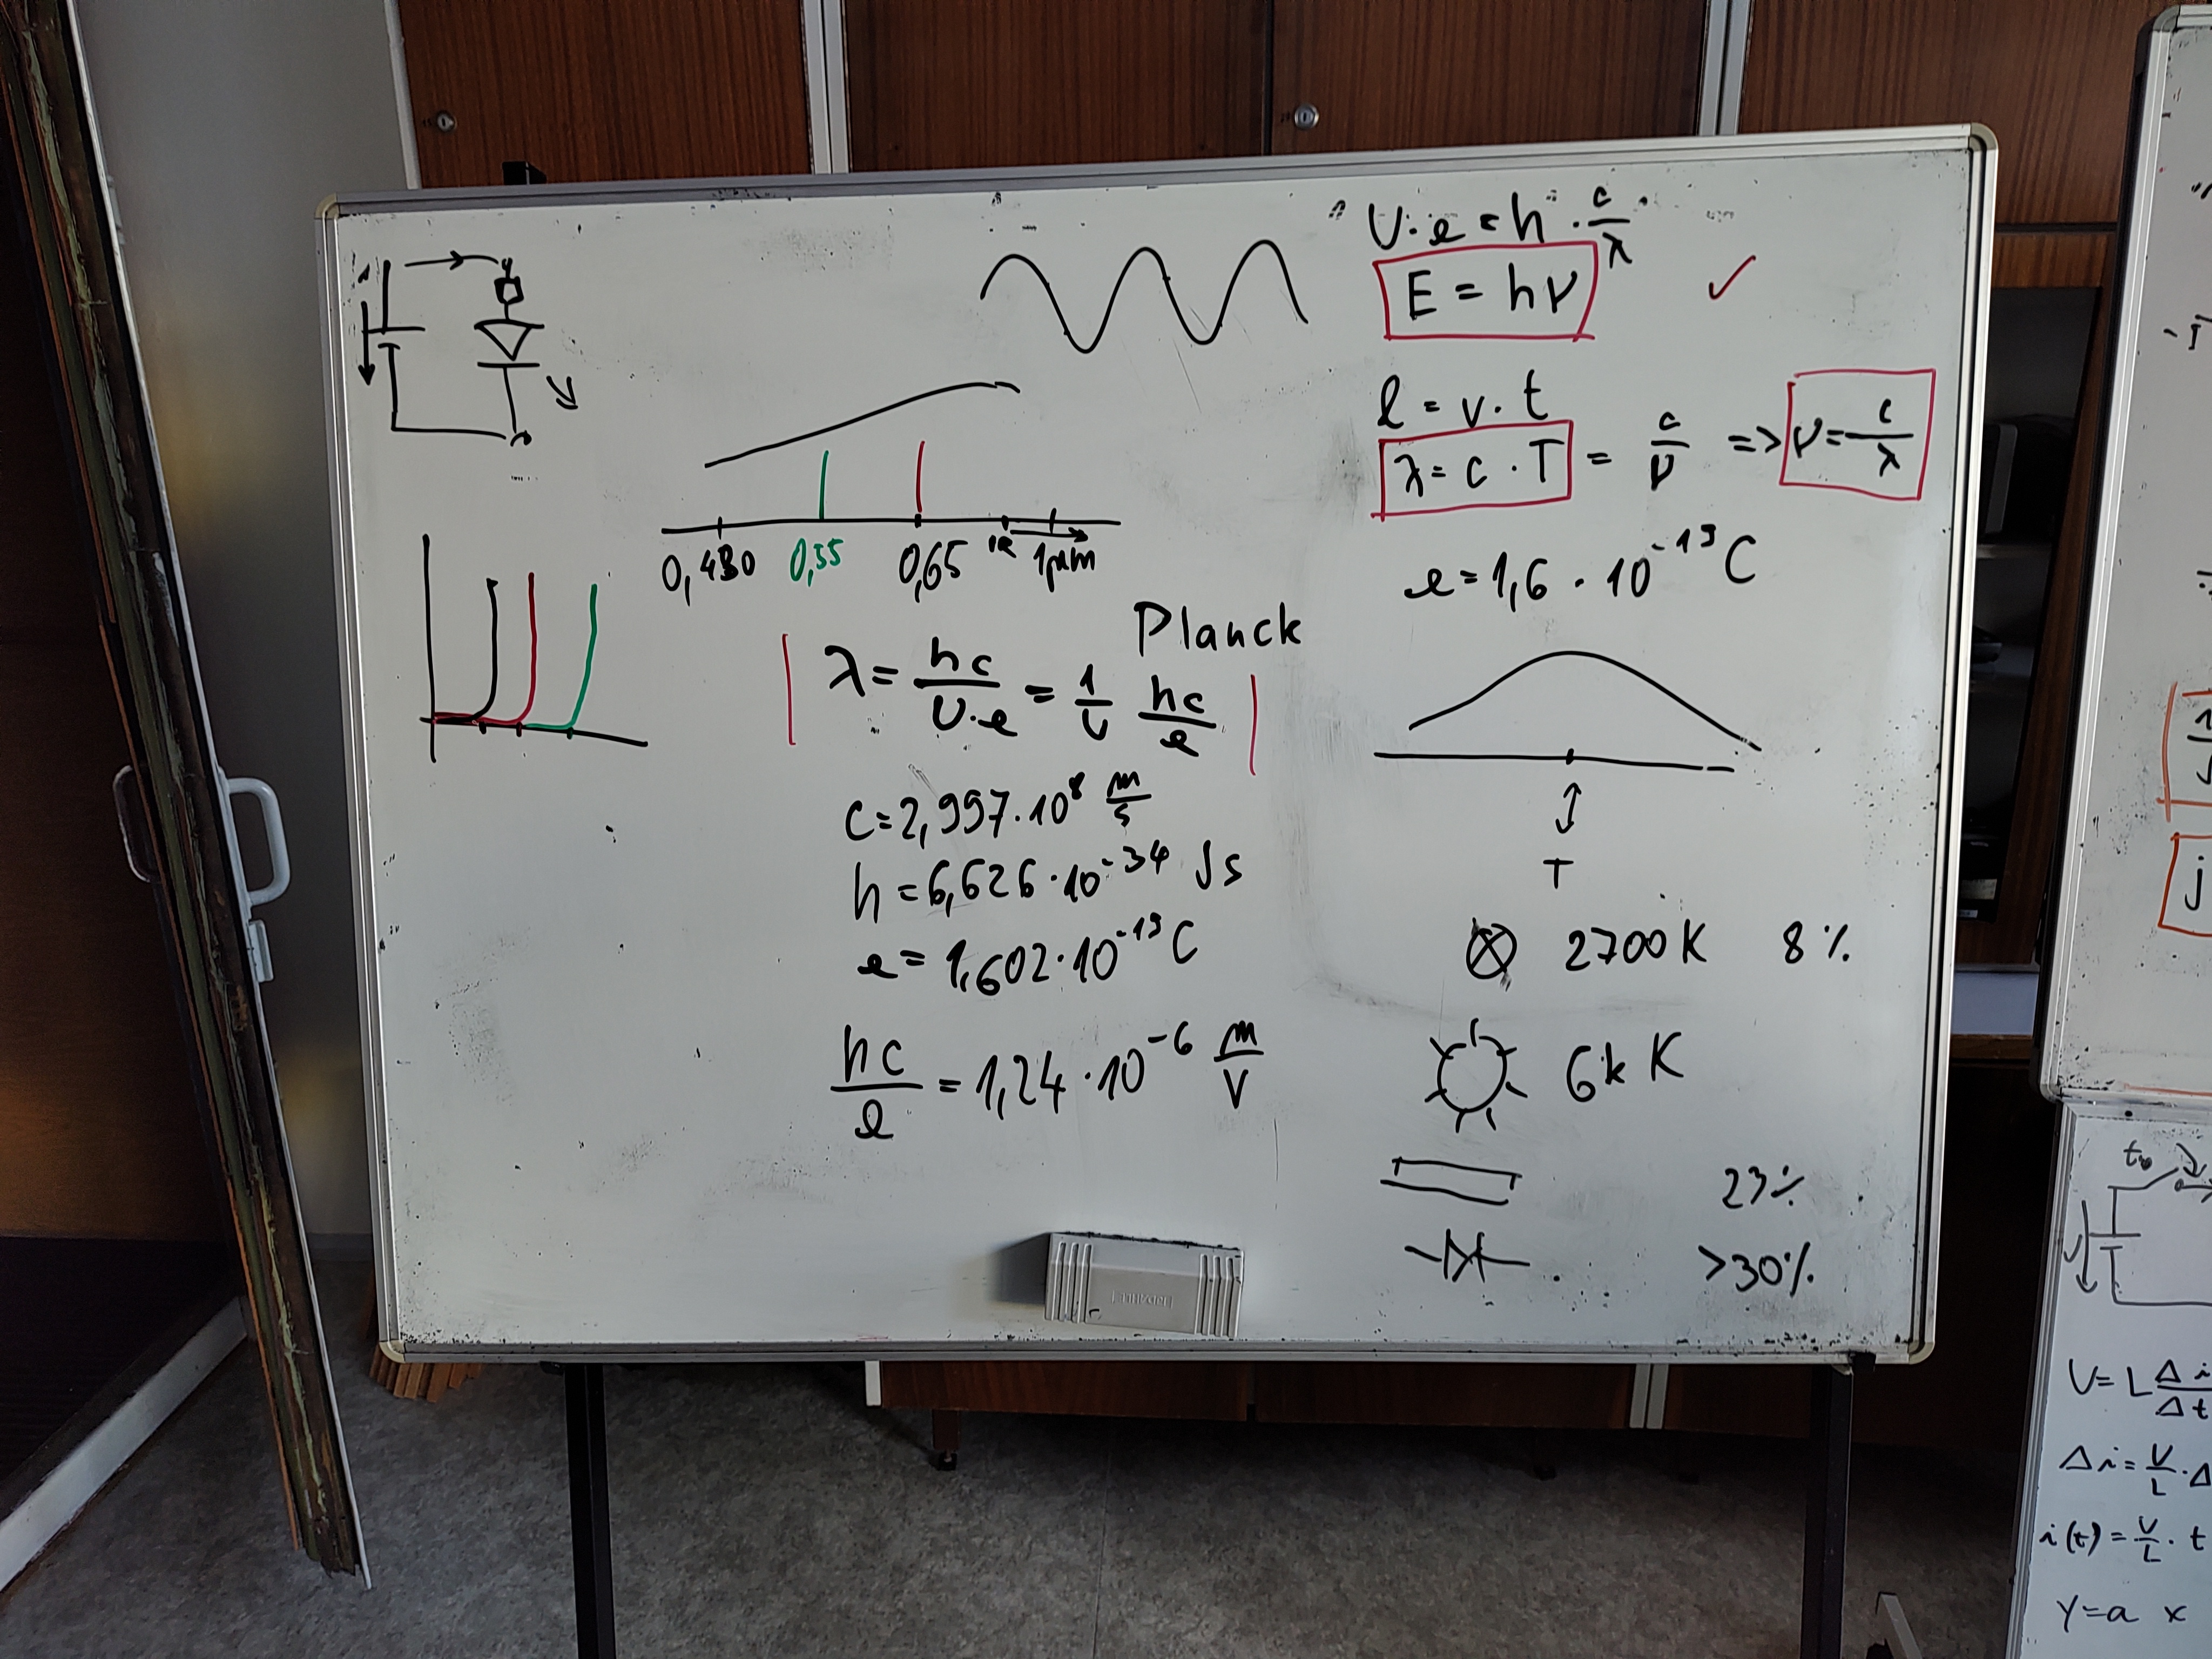 U·e = h · c/λ
E = hν ✓
l = v · t
λ = c · T = c/ν => ν = c/λ
e = 1,6 · 10⁻¹⁹ C
0,480 0,55 0,65 IR 1μm
Planck
λ = hc/(U·e) = 1/U hc/e
c = 2,997 · 10⁸ m/s
h = 6,626 · 10⁻³⁴ Js
e = 1,602 · 10⁻¹⁹ C
hc/e = 1,24 · 10⁻⁶ m/V
T
2700K 8%
6kK
23%
>30%
j
t₀
U = L Δi/Δt
Δi = U/L · Δ
i(t) = U/L · t
y = a x